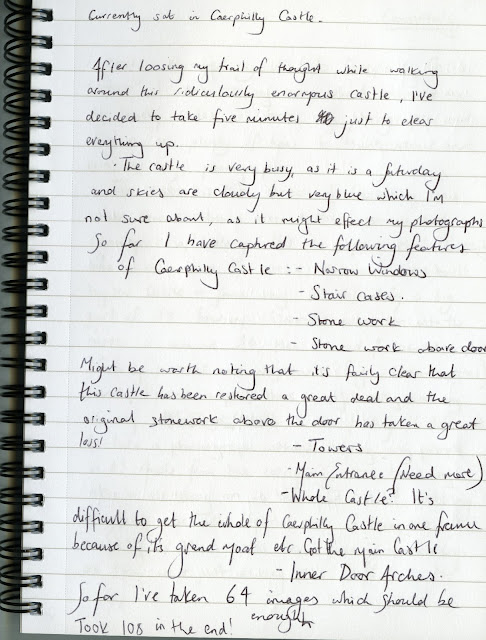 Currently sat in Caerphilly Castle.
After loosing my trail of thought while walking
around this ridiculously enormous castle, I've
decided to take five minutes just to clear
everything up.
· The castle is very busy, as it is a Saturday
and skies are cloudy but very blue which I'm
not sure about, as it might effect my photographs
So far I have captured the following features
of Caerphilly Castle :- Narrow Windows
- Stair cases.
- Stone work
- Stone work above door
Might be worth noting that it's fairly clear that
this castle has been restored a great deal and the
original stonework above the door has taken a great
loss!
- Towers
- Main Entrance (Need more)
- Whole Castle? It's
difficult to get the whole of Caerphilly Castle in one frame
because of it's grand moat etc. Got the main Castle
- Inner Door Arches.
So far I've taken 64 images which should be
enough
Took 108 in the end!